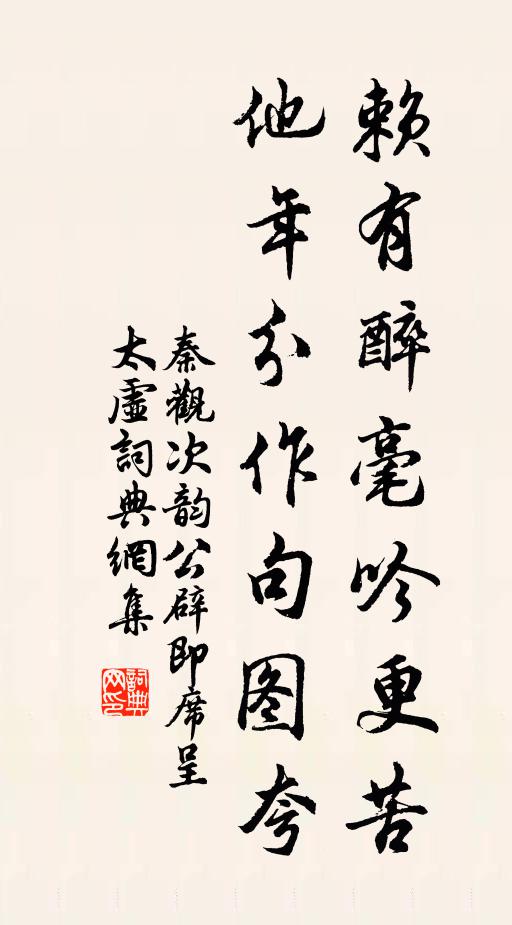 赖有醉毫吟更苦
他年分作句图夸
秦觀次韵公辟即席呈
太虚詞典網集
詞典网印